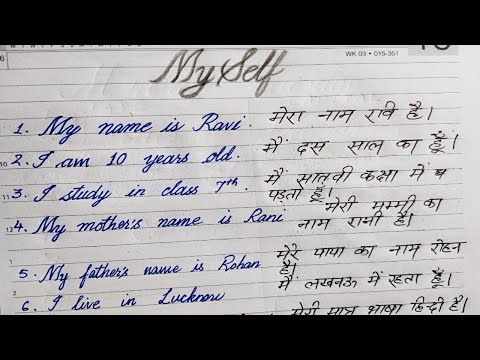 WK 03 • 015-351
My Self
1. My name is Ravi. मेरा नाम रवि है।
2. I am 10 years old. मैं दस साल का हूँ।
3. I study in class 7th. मैं सातवी कक्षा में
पड़ता हूँ।
4. My mother's name is Rani मेरी मम्मी का
नाम रानी है।
5. My father's name is Rohan मेरे पापा का नाम रोहन
है।
6. I live in Lucknow मैं लखनऊ में रहता हूँ।
मेरी मात्र भाषा हिन्दी है।